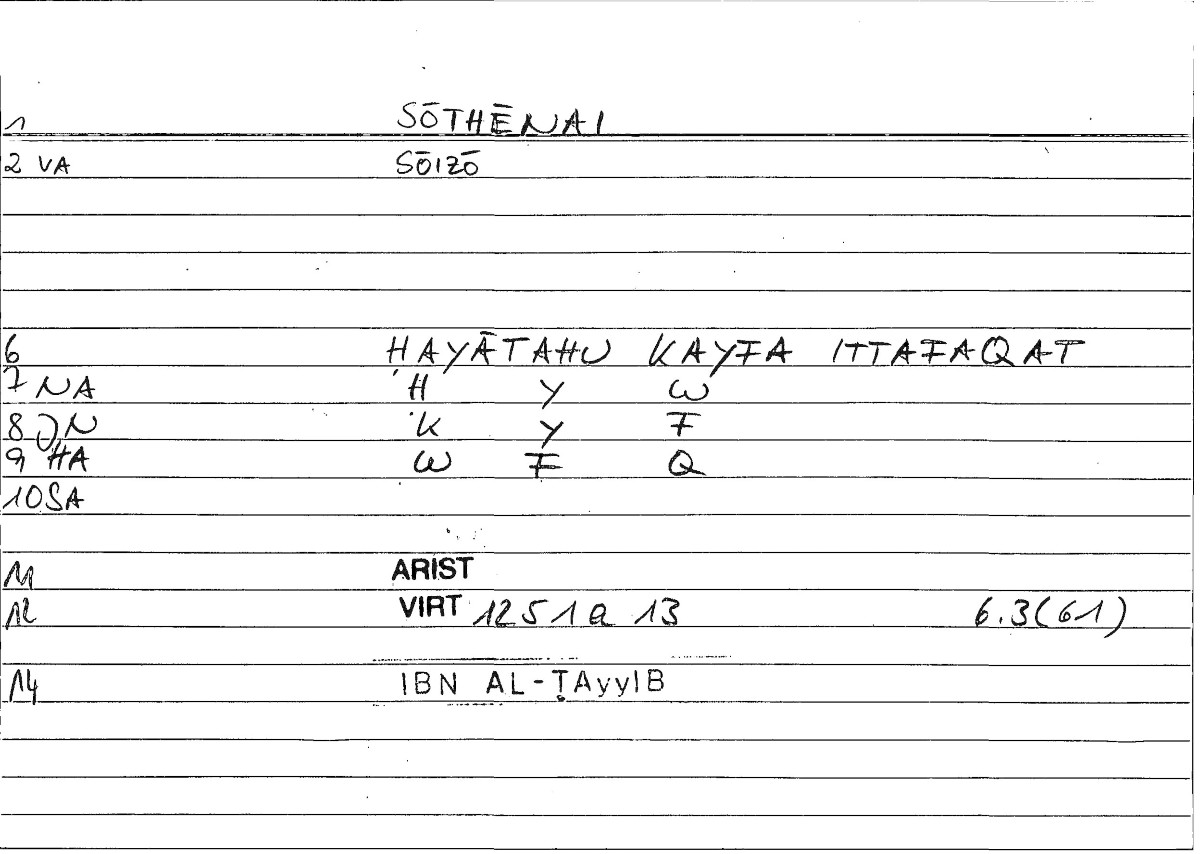 1 SŌTHĒNAI
2 VA SŌIZŌ
6 ḤAYĀTAHU KAYFA ITTAFAQAT
7 NA Ḥ Y W
8 QN K Y F
9 HA W F Q
10 SA
11 ARIST
12 VIRT 1251a 13 6.3(61)
14 IBN AL-ṬAyyIB